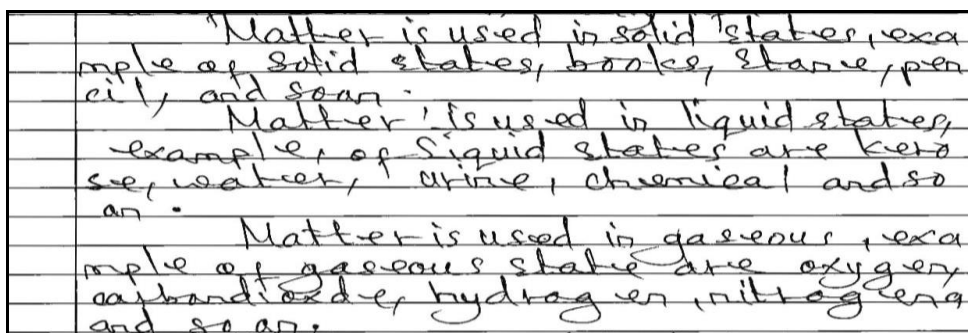 Matter is used in solid states, exa
mple of solid states, books, stone, pen
cil, and soan.
Matter is used in liquid states,
example, of Siquid states are kero
se, water, urine, chemical and so
an.
Matter is used in gaseous, exa
mple of gaseous state are oxygen,
carbondioxde, hydrogen, nitrogena
and so an.